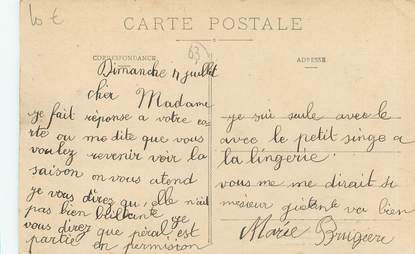 10 €
CARTE POSTALE
63
CORRESPONDANCE
ADRESSE
Dimanche 11 juillet
cher Madame
je fait réponse a votre ca
rte ou me dite que vous
voulez revenir voir la
saison on vous atend
je vous direz qu, elle n'est
pas bien brillante je
vous direz que péral est
partie en permision
je sui seule avec le
avec le petit singe a
la lingerie.
vous me me dirait si
mesieur va bien
Marie Bruguere